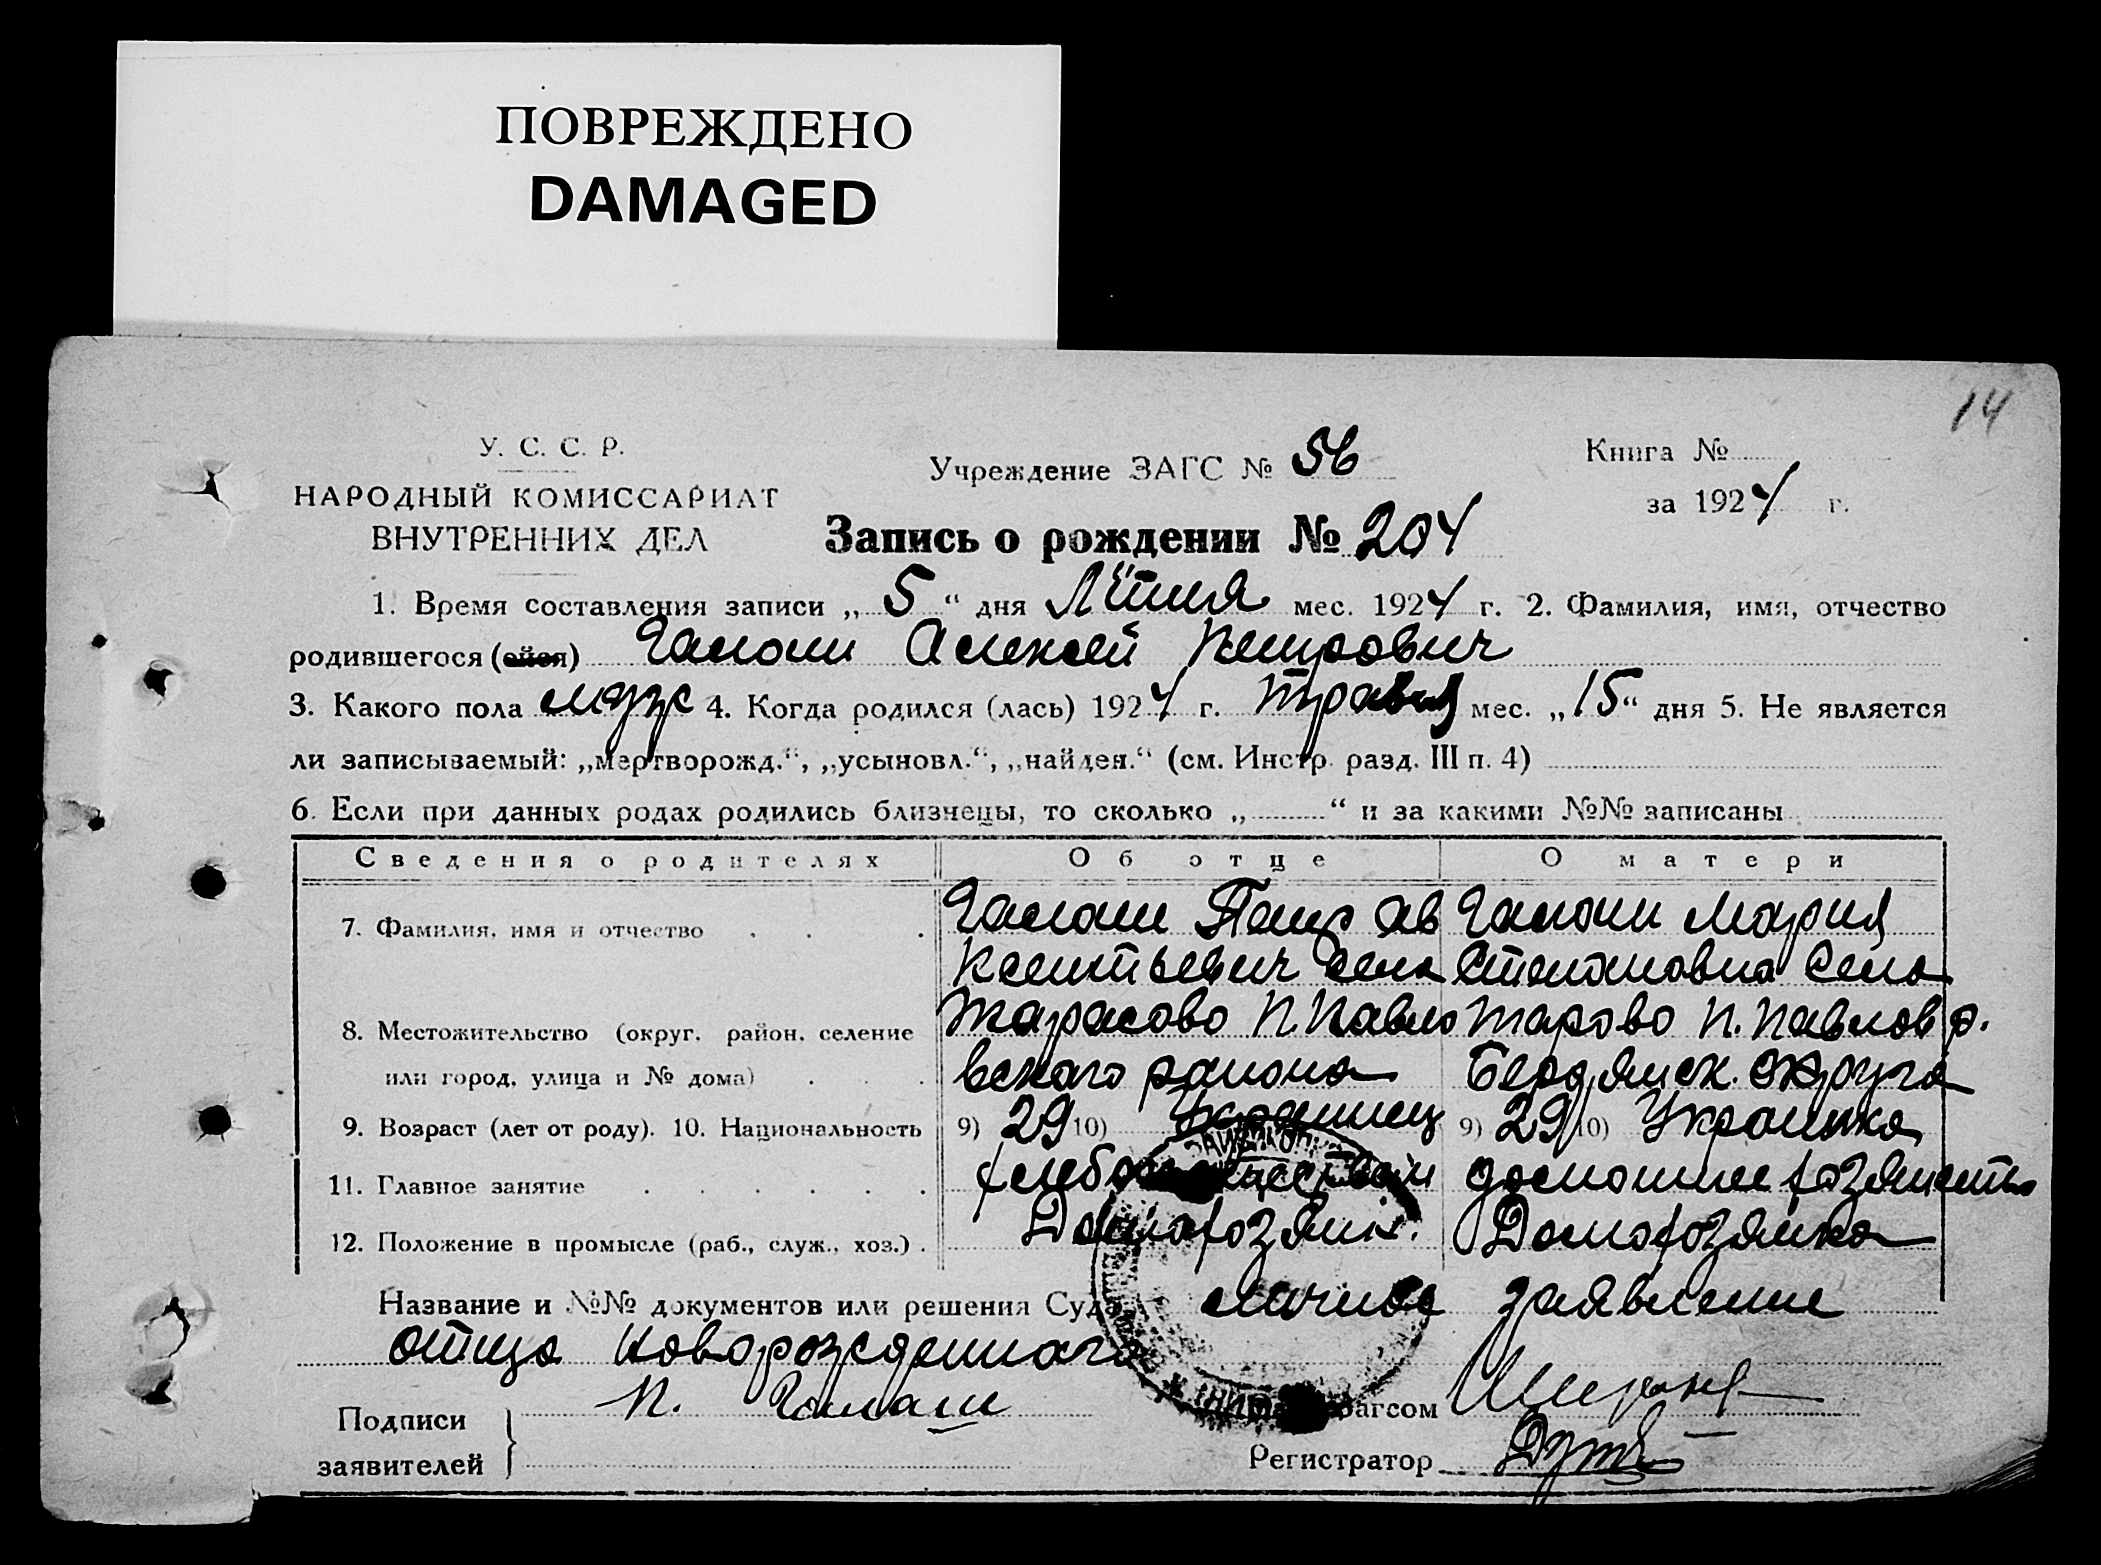 ПОВРЕЖДЕНО
DAMAGED
14
У. С. С. Р.
НАРОДНЫЙ КОМИССАРИАТ
ВНУТРЕННИХ ДЕЛ
Учреждение ЗАГС № 56
Книга №
за 1924 г.
Запись о рождении № 204
1. Время составления записи „5“ дня Липня мес. 1924 г. 2. Фамилия, имя, отчество
родившегося (ейся) Галаш Алексей Петрович
3. Какого пола мужс 4. Когда родился (лась) 1924 г. Травня мес. „15“ дня 5. Не является
ли записываемый: „мертворожд.“, „усыновл.“, „найден.“ (см. Инстр. разд. III п. 4)
6. Если при данных родах родились близнецы, то сколько „ “ и за какими №№ записаны
Сведения о родителях Об отце О матери
7. Фамилия, имя и отчество Галаш Петр Ав Галаш Мария
Ксентьевич села Степановна Села
8. Местожительство (округ, район, селение Тарасово П. Павло Тарово П. Павлов р.
или город, улица и № дома) вского района Бердянск. Округа
9. Возраст (лет от роду). 10. Национальность 9) 29 10) Украинец 9) 29 10) Украинка
11. Главное занятие домашнее хозяйство
12. Положение в промысле (раб., служ., хоз.) Домохозяин. Домохозяйка
Название и №№ документов или решения Суда личное заявление
отца новорожденного
Подписи
заявителей
П. Галаш
загсом
Регистратор